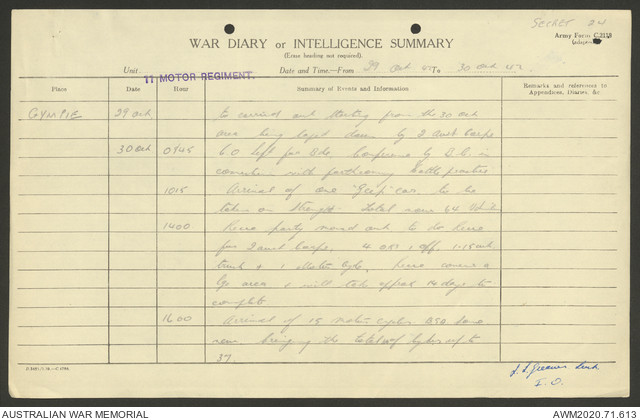 SECRET 24
Army Form C.2118
WAR DIARY or INTELLIGENCE SUMMARY
(Erase heading not required).
Unit 11 MOTOR REGIMENT. Date and Time:—From 29 Oct 42 To 30 Oct 42
Place Date Hour Summary of Events and Information Remarks and references to Appendices, Diaries, &c
GYMPIE 29 Oct to carried out starting from the 30 Oct
area being layed down by 2 Aust Corps
30 Oct 0945 C.O left for Bde Conference by B.C. in
connection with forthcoming battle practice
1015 Arrival of one "Jeep" car to be
taken on strength. Total now 64
1400 Recce party moved out to do Recce
for 2 Aust Corps, 4 ORs 1 Off 1-15 cwt
truck & 1 Motor Cycle, Recce covers a
area & will take approx 14 days to
complete
1600 Arrival of 15 Motor cycles BSA
new, bringing the total of cycles up to
37.
Lieut
I.O.
AUSTRALIAN WAR MEMORIAL AWM2020.71.613